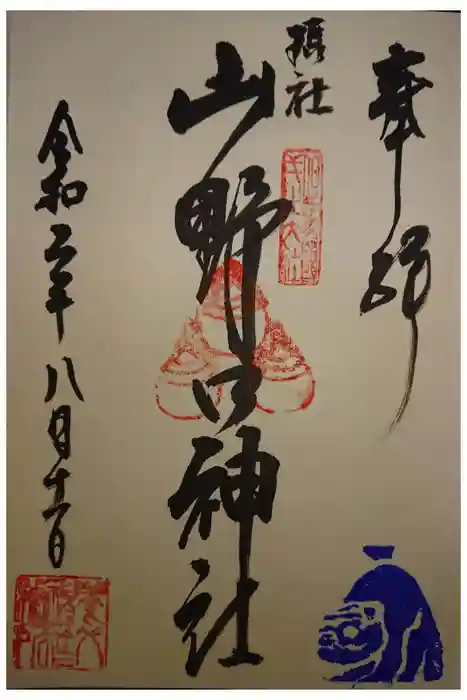 奉拝
摂社
山野口神社
令和二年八月十一日